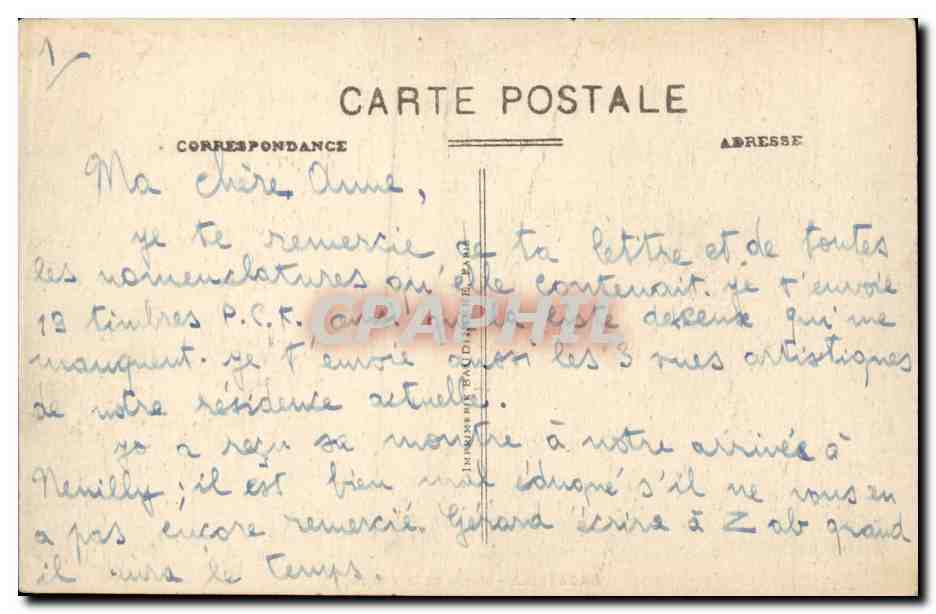 1/
CARTE POSTALE
CORRESPONDANCE
ADRESSE
Ma chère Anne,
je te remercie de ta lettre et de toutes
les nomenclatures qu'elle contenait. je t'envoie
13 timbres P.C.F. ainsi que la liste de ceux qui me
manquent. je t'envoie aussi les 3 vues artistiques
de notre résidence actuelle.
Jo a reçu sa montre à notre arrivée à
Neuilly; il est bien mal éduqué s'il ne vous en
a pas encore remercié. Gérard écrira à Zab quand
il aura le temps.
IMPRIMERIE BAUDINIERE, PARIS
CPAPHIL